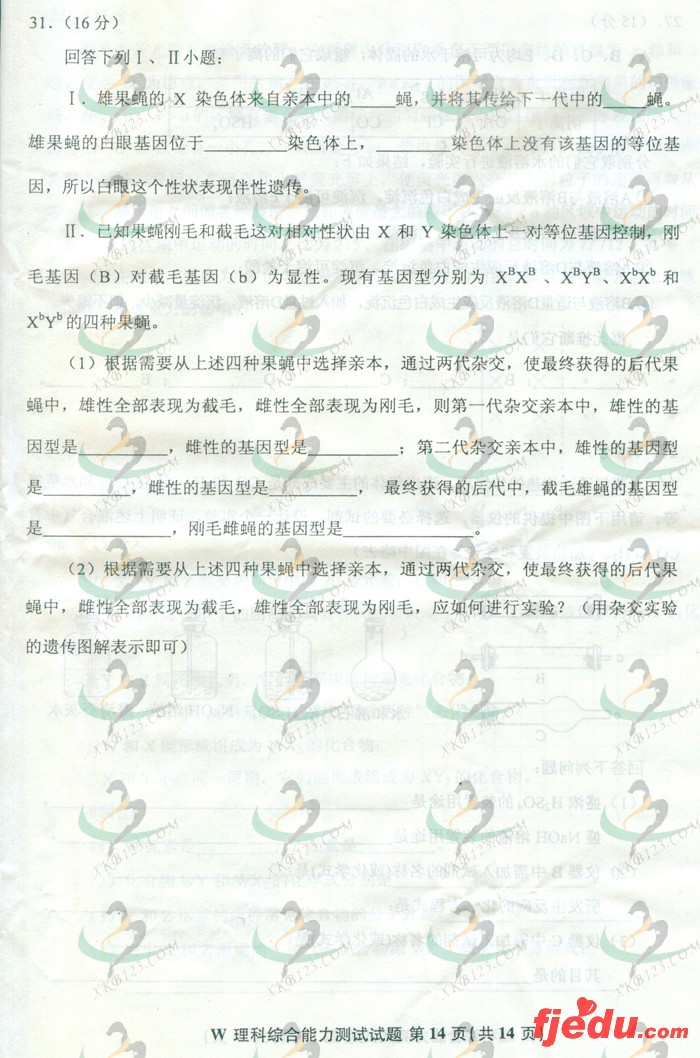 31．（16 分）
回答下列Ⅰ、Ⅱ小题：
Ⅰ．雄果蝇的 X 染色体来自亲本中的_____蝇，并将其传给下一代中的_____蝇。
雄果蝇的白眼基因位于_________染色体上，________染色体上没有该基因的等位基
因，所以白眼这个性状表现伴性遗传。
Ⅱ．已知果蝇刚毛和截毛这对相对性状由 X 和 Y 染色体上一对等位基因控制，刚
毛基因（B）对截毛基因（b）为显性。现有基因型分别为 XᴮXᴮ 、XᴮYᴮ、XᵇXᵇ 和
XᵇYᵇ的四种果蝇。
（1）根据需要从上述四种果蝇中选择亲本，通过两代杂交，使最终获得的后代果
蝇中，雄性全部表现为截毛，雌性全部表现为刚毛，则第一代杂交亲本中，雄性的基
因型是__________，雌性的基因型是__________；第二代杂交亲本中，雄性的基因型
是__________，雌性的基因型是__________， 最终获得的后代中，截毛雄蝇的基因型
是______________，刚毛雌蝇的基因型是______________。
（2）根据需要从上述四种果蝇中选择亲本，通过两代杂交，使最终获得的后代果
蝇中，雌性全部表现为截毛，雄性全部表现为刚毛，应如何进行实验？（用杂交实验
的遗传图解表示即可）
W 理科综合能力测试试题 第 14 页(共 14 页)
XKB123.COM
fjedu.com